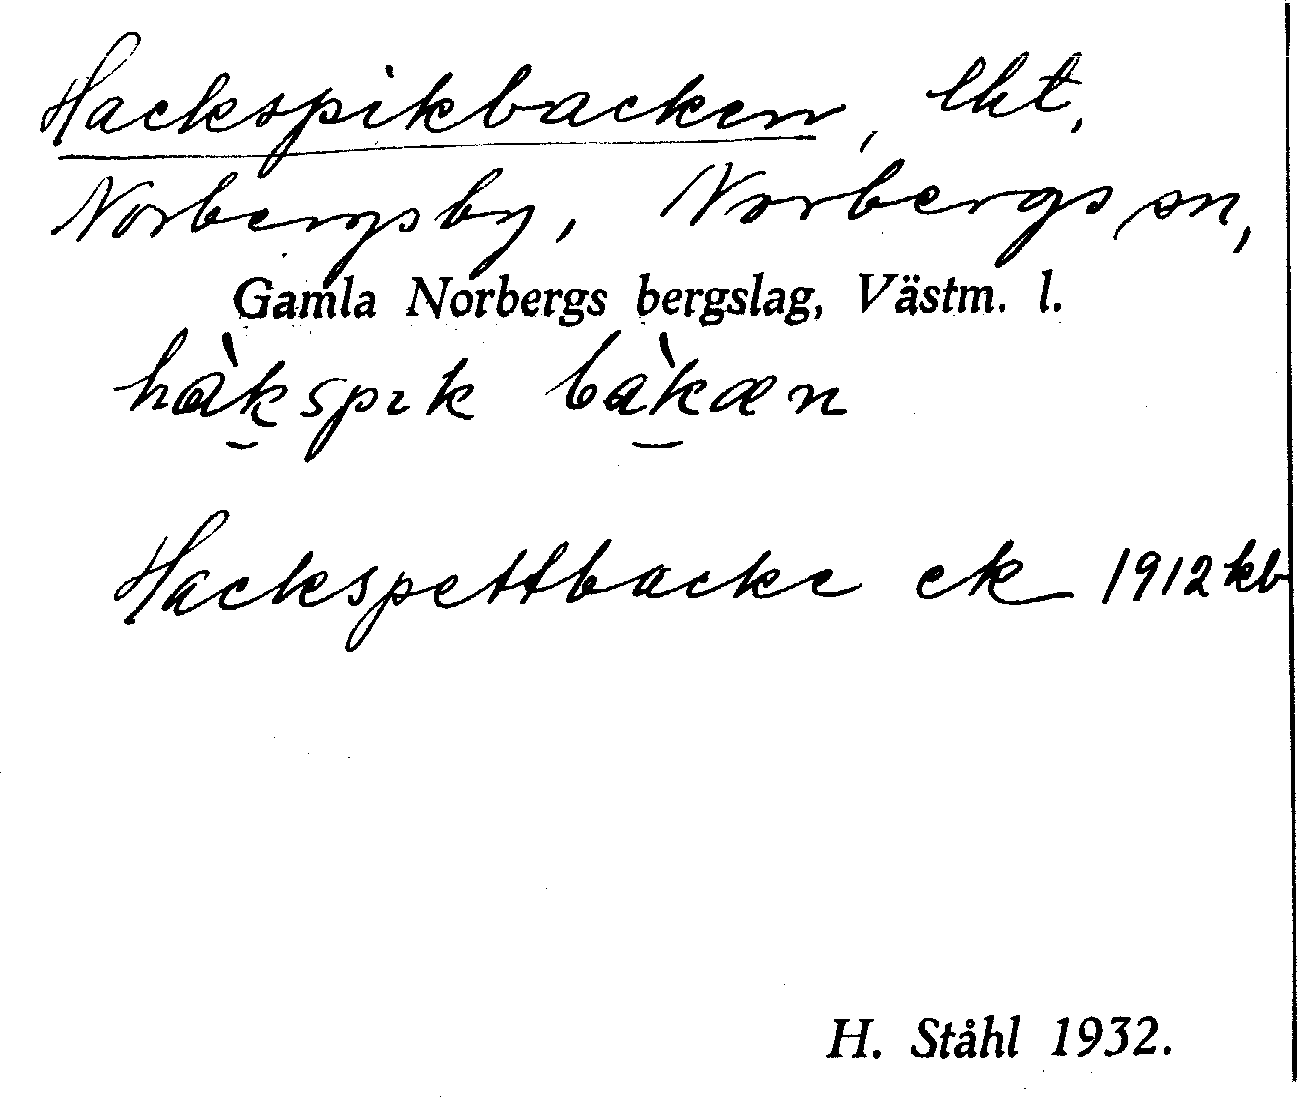 Hackspikbacken, lht,
Norbergsby, Norbergs sn,
Gamla Norbergs bergslag, Västm. l.
hàk̠spık bàk̠æn
Hackspettbacke ek 1912 kb
H. Ståhl 1932.